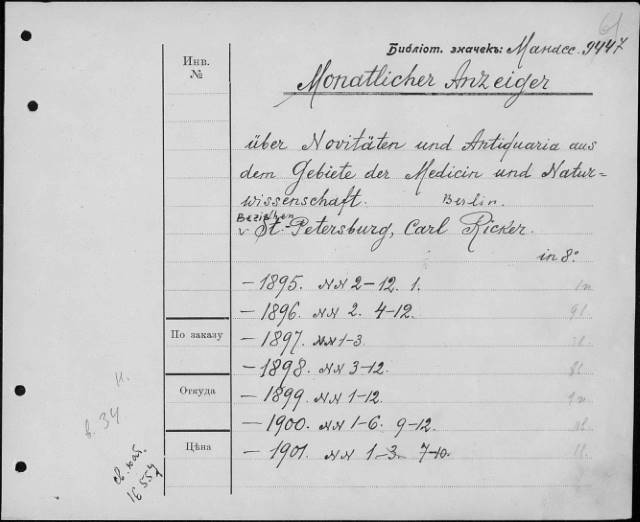 61
Библіот. значекъ: Мансс. 9447
Инв.
№
Monatlicher Anzeiger
über Novitäten und Antiquaria aus
dem Gebiete der Medicin und Natur=
wissenschaft. Berlin.
Beziehen
v St. Petersburg, Carl Ricker.
in 8º
– 1895. NN 2–12. 1.
– 1896. NN 2. 4–12.
По заказу
– 1897. NN 1–3.
– 1898. NN 3–12.
Откуда
– 1899. NN 1–12.
– 1900. NN 1–6. 9–12.
Цѣна
– 1901. NN 1–3. 7–10.
в. 34
16554